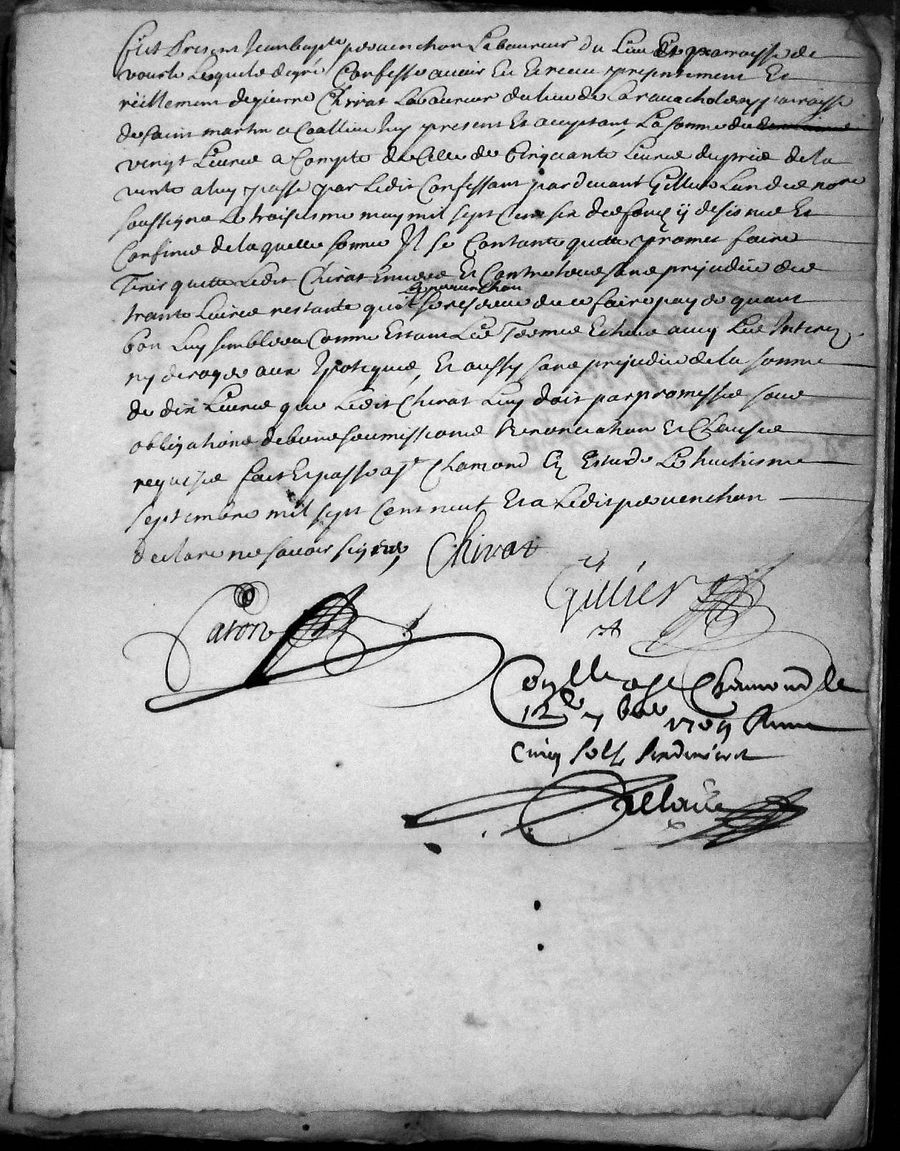 fut Present Jean bapte prevenchon Laboureur du Lieu Et parroisse de
Lequel de gré Confesse avoir Eu et receu presentement Et
réellement de pierre Chirat Laboureur du lieu de parroisse
de saint martin a Coallieu Icy present Et aceptant La somme de
vingt Livres a Compte de Celle de Cinquante Livres du prix de la
vente a luy passé par Ledit Confessant pardevant Gillier nore
soussigné Le troisiesme may mil sept Cent six Et
de laquelle somme Il se Contante quitte promet faire
Tenir quitte Ledit Chirat Envers Et Contre tous sans prejudice des
prevenchon
trante Livres restante qu'il se reserve de ce faire payer quant
bon Luy semblera Comme Estant Le Terme Echeu avec Les Interez
ny deroger aux Ipotiques, Et aussy sans prejudice de la somme
de dix Livres que Ledit Chirat Luy doit par promesse sous
obligations de biens soumissions Renonciation Et Clauses
requises fait Et passé a st Chamond En Estude Le huitiesme
septembre mil sept Cent neuf Et a Ledit prevenchon
declaré ne savoir signer Chirat
Gillier
Paron
Collé a st Chamond le
12e 7bre 1709
Cinq sols